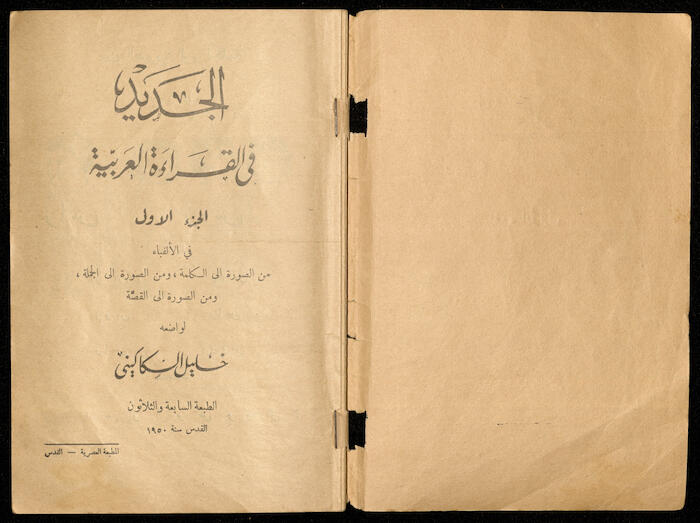 الجديد
في القراءة العربيّة
الجزء الاولى
في الألفباء
من الصورة الى الكلمة ، ومن الصورة الى الجملة ،
ومن الصورة الى القصّة
لواضعه
خليل السكاكيني
الطبعة السابعة والثلاثون
القدس سنة ١٩٥٠
المطبعة العصرية — القدس